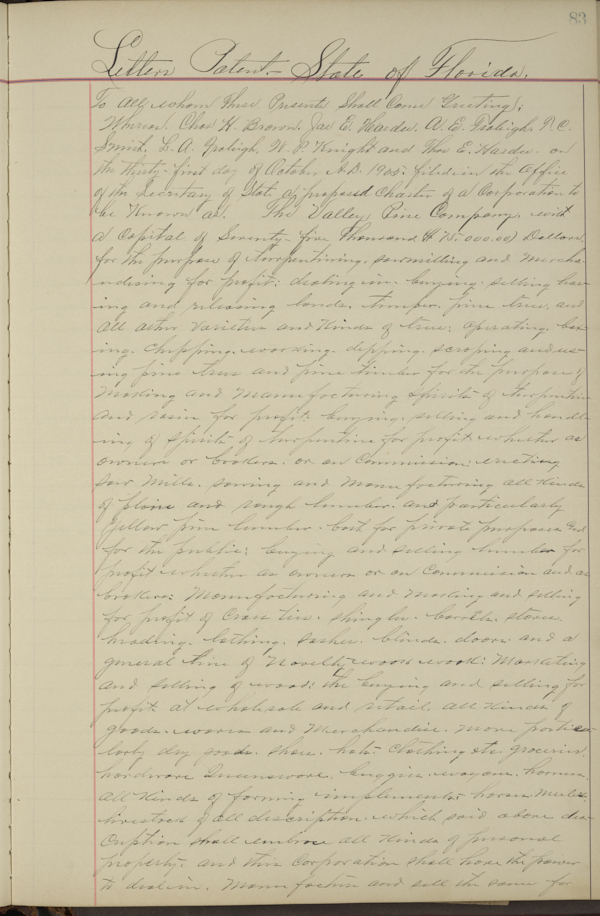 83
Letters Patent - State of Florida.
To All, whom These Presents Shall Come Greeting;
Whereas, Chas H. Brown, Jas E. Harder, A. E. R. C.
Smith, L. A. W. P. Knight and Thos E. Harder on
the thirty-first day of October A.D. 1905 filed in the office
of the Secretary of State a proposed Charter of a Corporation to
be Known as. The Valley Pine Company. with
a Capital of Seventy-five Thousand ($75,000.00) Dollars
for the purpose of turpentining, sawmilling and Mercha-
ndising for profit; dealing in, buying, selling leas-
ing and releasing lands, timber, pine trees, and
all other Varieties and Kinds of trees; operating, box-
ing, chipping, working, dipping, scraping and us-
ing pine trees and pine timber for the purpose of
Making and Manufacturing Spirits of turpentine
and rosin for profit; buying, selling and handl-
ing of spirits of turpentine for profit whether as
owners or brokers, or on Commission; erecting
Saw Mills, sawing and Manufacturing all Kinds
of plain and rough lumber, and particularly
yellow pine lumber, both for private purposes and
for the public; buying and selling lumber for
profit whether as owners or on Commission and as
brokers; Manufacturing and Making and selling
for profit of Cross ties, shingles, barrels, staves,
heading, lathing, sashes, blinds, doors and a
general line of Novelty works work; Marketing
and selling of wood; the buying and selling for
profit at wholesale and retail all Kinds of
goods, wares and Merchandise, More particu-
larly dry goods, shoes, hats, Clothing etc. groceries,
hardware Queensware, buggies, wagons, harness,
all Kinds of farming implements, horses, Mules,
livestock of all description which said above des-
cription shall embrace all Kinds of personal
property, and this Corporation shall have the power
to deal in, Manufacture and sell the same for